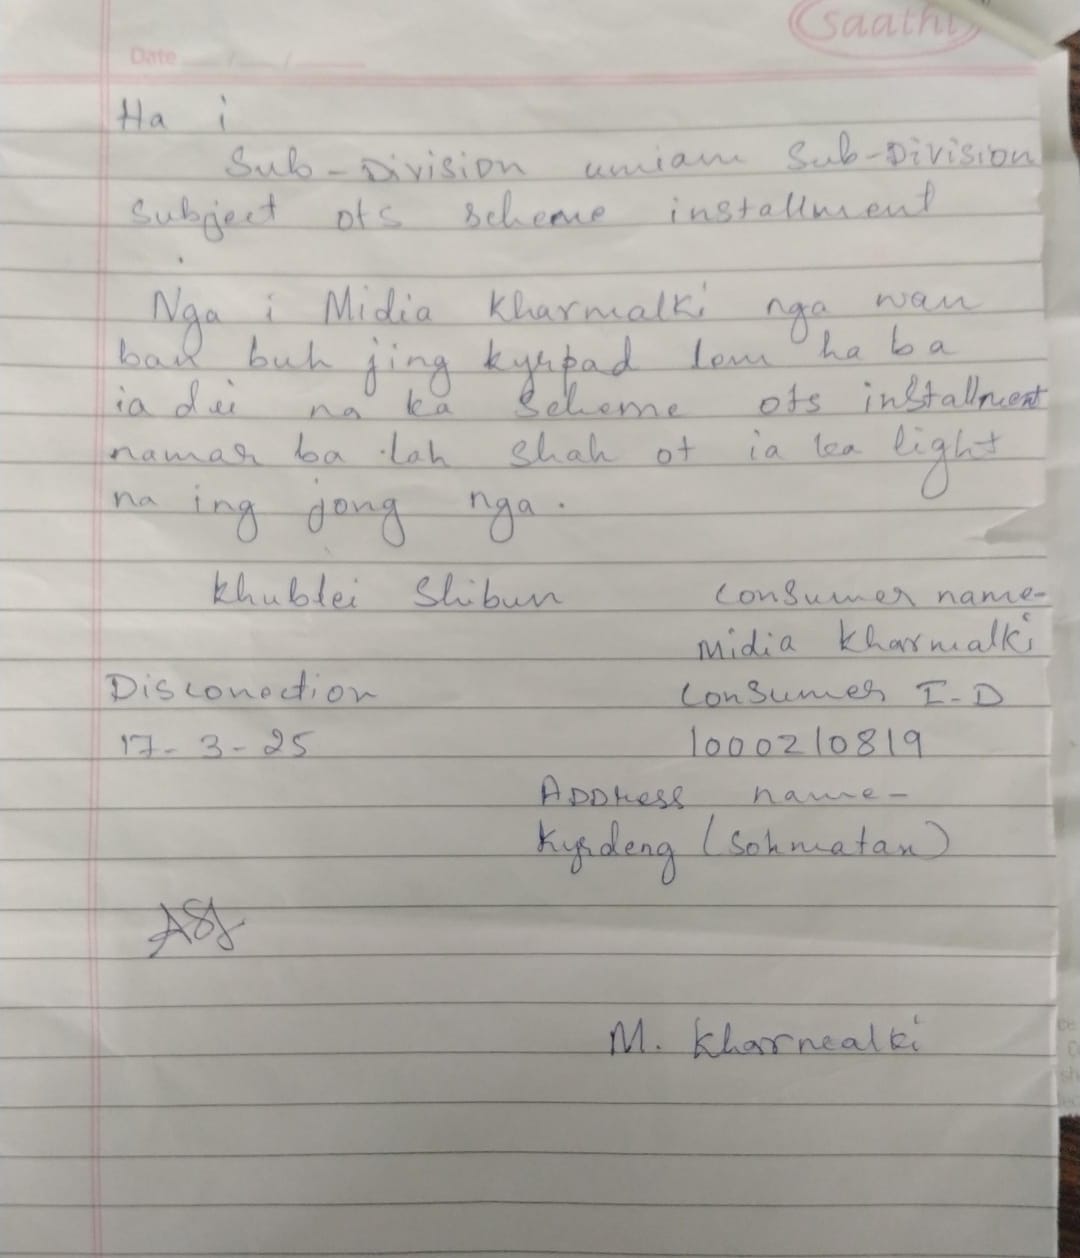 saathi
Date
Ha i
Sub-Division umiam Sub-Division
Subject ots scheme installment
Nga i Midia Kharmalki nga wan
ban buh jing kyrpad lem ha ba
ia dei na ka Scheme ots installment
namar ba lah Shah ot ia ka light
na ing jong nga.
Khublei Shibun
Consumer name-
Midia Kharmalki
Disconoction
Consumer I-D
17-3-25
1000210819
ADDress name-
Kyrdeng (Sohmatan)
M. Kharmalki